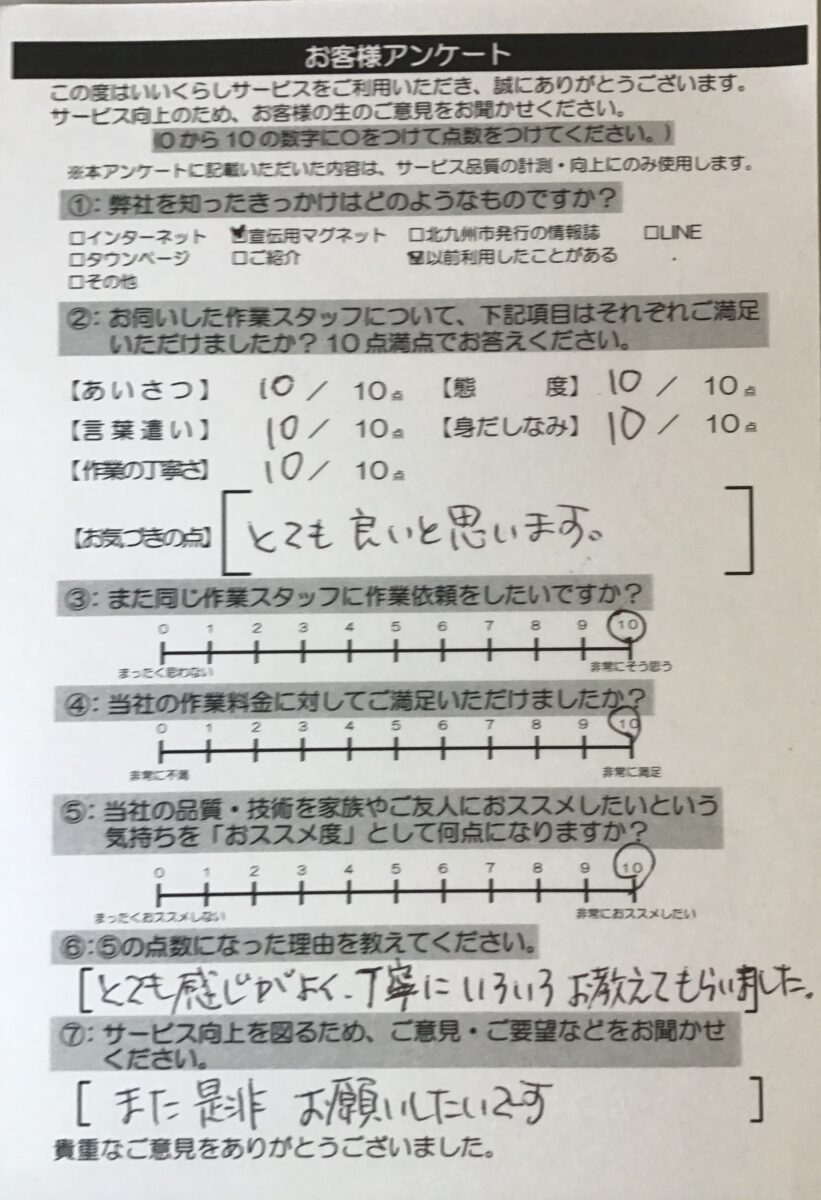 お客様アンケート
この度はいいくらしサービスをご利用いただき、誠にありがとうございます。
サービス向上のため、お客様の生のご意見をお聞かせください。
(0から10の数字に○をつけて点数をつけてください。)
※本アンケートに記載いただいた内容は、サービス品質の計測・向上にのみ使用します。
①:弊社を知ったきっかけはどのようなものですか?
□インターネット ☑宣伝用マグネット □北九州市発行の情報誌 □LINE
□タウンページ □ご紹介 ☑以前利用したことがある
□その他
②:お伺いした作業スタッフについて、下記項目はそれぞれご満足
いただけましたか?10点満点でお答えください。
【あいさつ】 10 / 10点 【態度】 10 / 10点
【言葉遣い】 10 / 10点 【身だしなみ】 10 / 10点
【作業の丁寧さ】 10 / 10点
【お気づきの点】 [とても良いと思います。]
③:また同じ作業スタッフに作業依頼をしたいですか?
0 1 2 3 4 5 6 7 8 9 10
まったく思わない 非常にそう思う
④:当社の作業料金に対してご満足いただけましたか?
0 1 2 3 4 5 6 7 8 9 10
非常に不満 非常に満足
⑤:当社の品質・技術を家族やご友人におススメしたいという
気持ちを「おススメ度」として何点になりますか?
0 1 2 3 4 5 6 7 8 9 10
まったくおススメしない 非常におススメしたい
⑥:⑤の点数になった理由を教えてください。
[とても感じがよく、丁寧にいろいろお教えてもらいました。]
⑦:サービス向上を図るため、ご意見・ご要望などをお聞かせ
ください。
[また是非お願いしたいです]
貴重なご意見をありがとうございました。